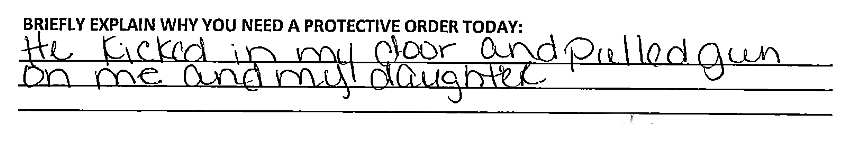 BRIEFLY EXPLAIN WHY YOU NEED A PROTECTIVE ORDER TODAY:
He kicked in my door and pulled gun
on me and my daughter